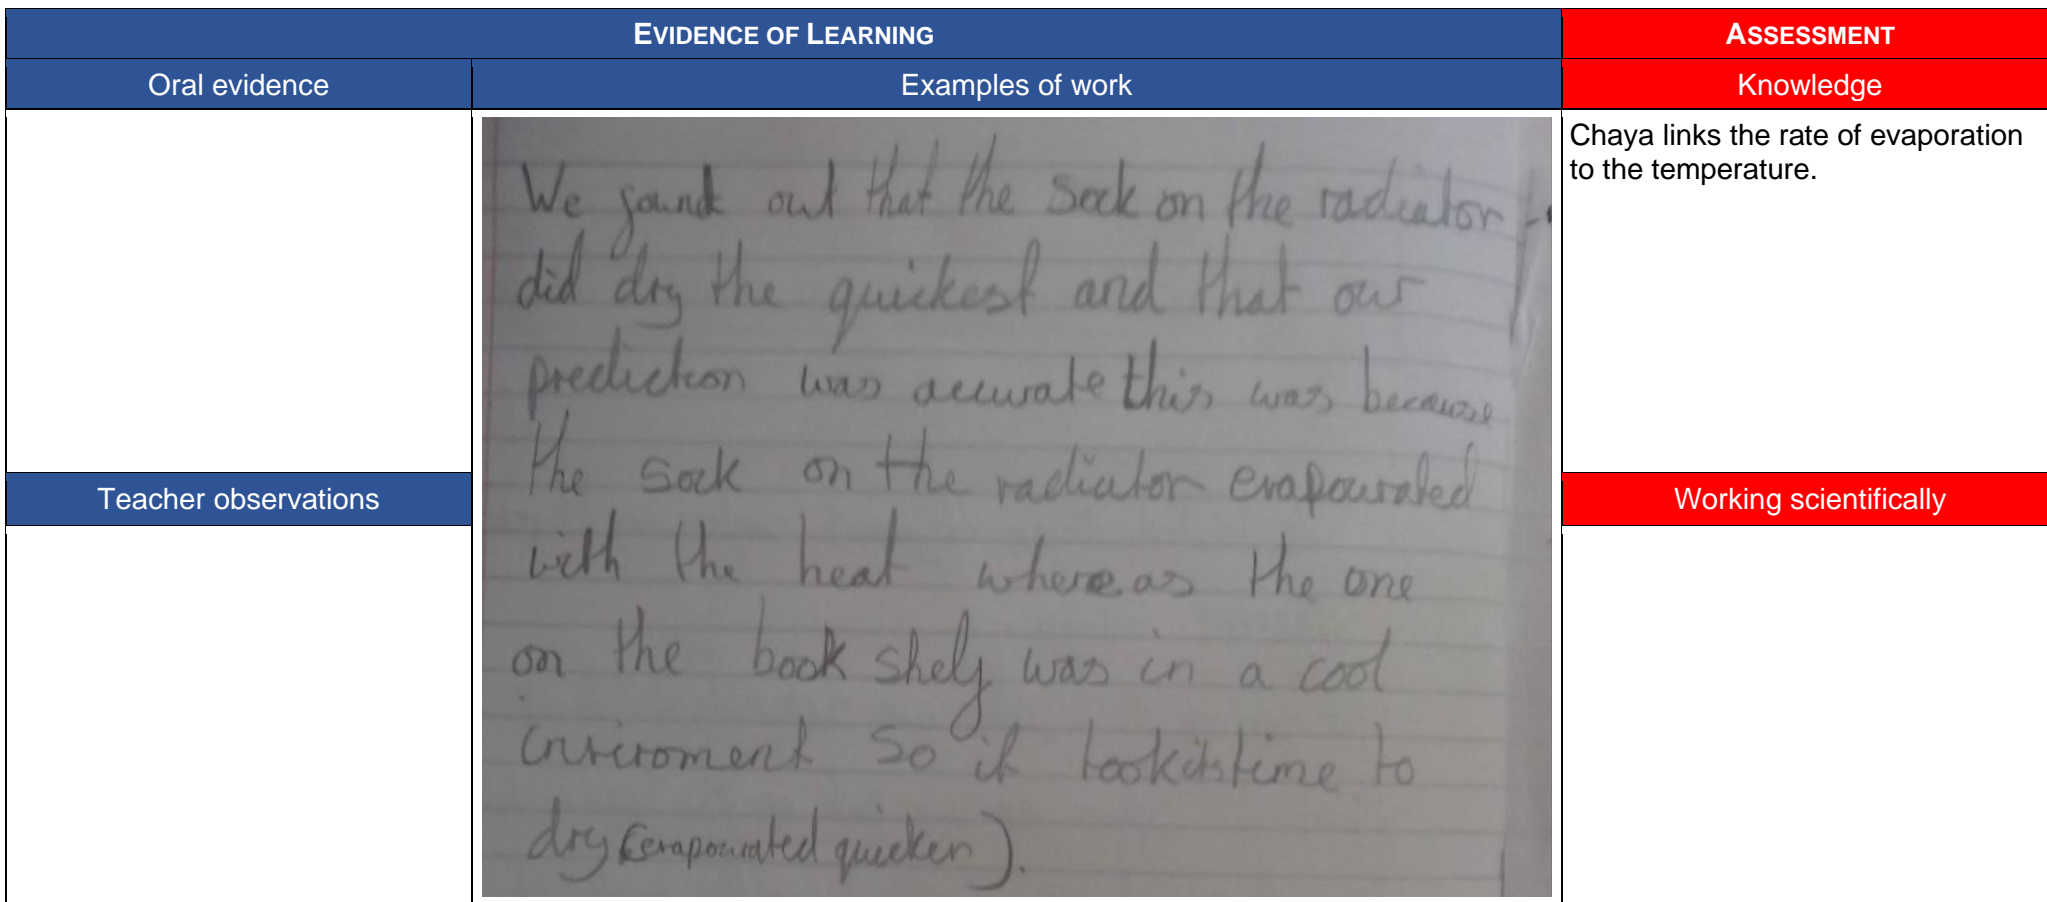 EVIDENCE OF LEARNING
ASSESSMENT
Oral evidence
Examples of work
Knowledge
We found out that the sock on the radiator
did dry the quickest and that our
prediction was accurate this was because
the sock on the radiator evapourated
with the heat where as the one
on the book shelf was in a cool
enviroment so it took its time to
dry (evapourated quicker).
Chaya links the rate of evaporation
to the temperature.
Teacher observations
Working scientifically